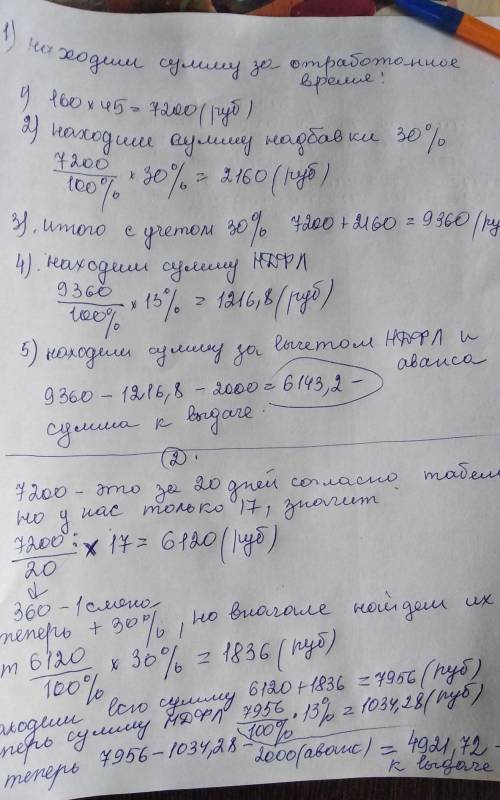 1) находим сумму за отработанное
время:
1) 160 × 45 = 7200 (руб)
2) находим сумму надбавки 30%
7200/100% × 30% = 2160 (руб)
3). итого с учетом 30% 7200 + 2160 = 9360 (ру
4). находим сумму НДФЛ
9360/100% × 13% = 1216,8 (руб)
5) находим сумму за вычетом НДФЛ и
аванса
9360 - 1216,8 - 2000 = 6143,2 -
сумма к выдаче.
2.
7200 - это за 20 дней согласно табел
но у нас только 17, значит:
7200/20 × 17 = 6120 (руб)
↓
360 - 1 смена
теперь + 30%, но вначале найдем их
т 6120/100% × 30% = 1836 (руб)
аходим всю сумму 6120 + 1836 = 7956 (руб)
перь сумму НДФЛ 7956/100% · 13% = 1034,28 (руб)
теперь 7956 - 1034,28 - 2000 (аванс) = 4921,72 -
к выдаче